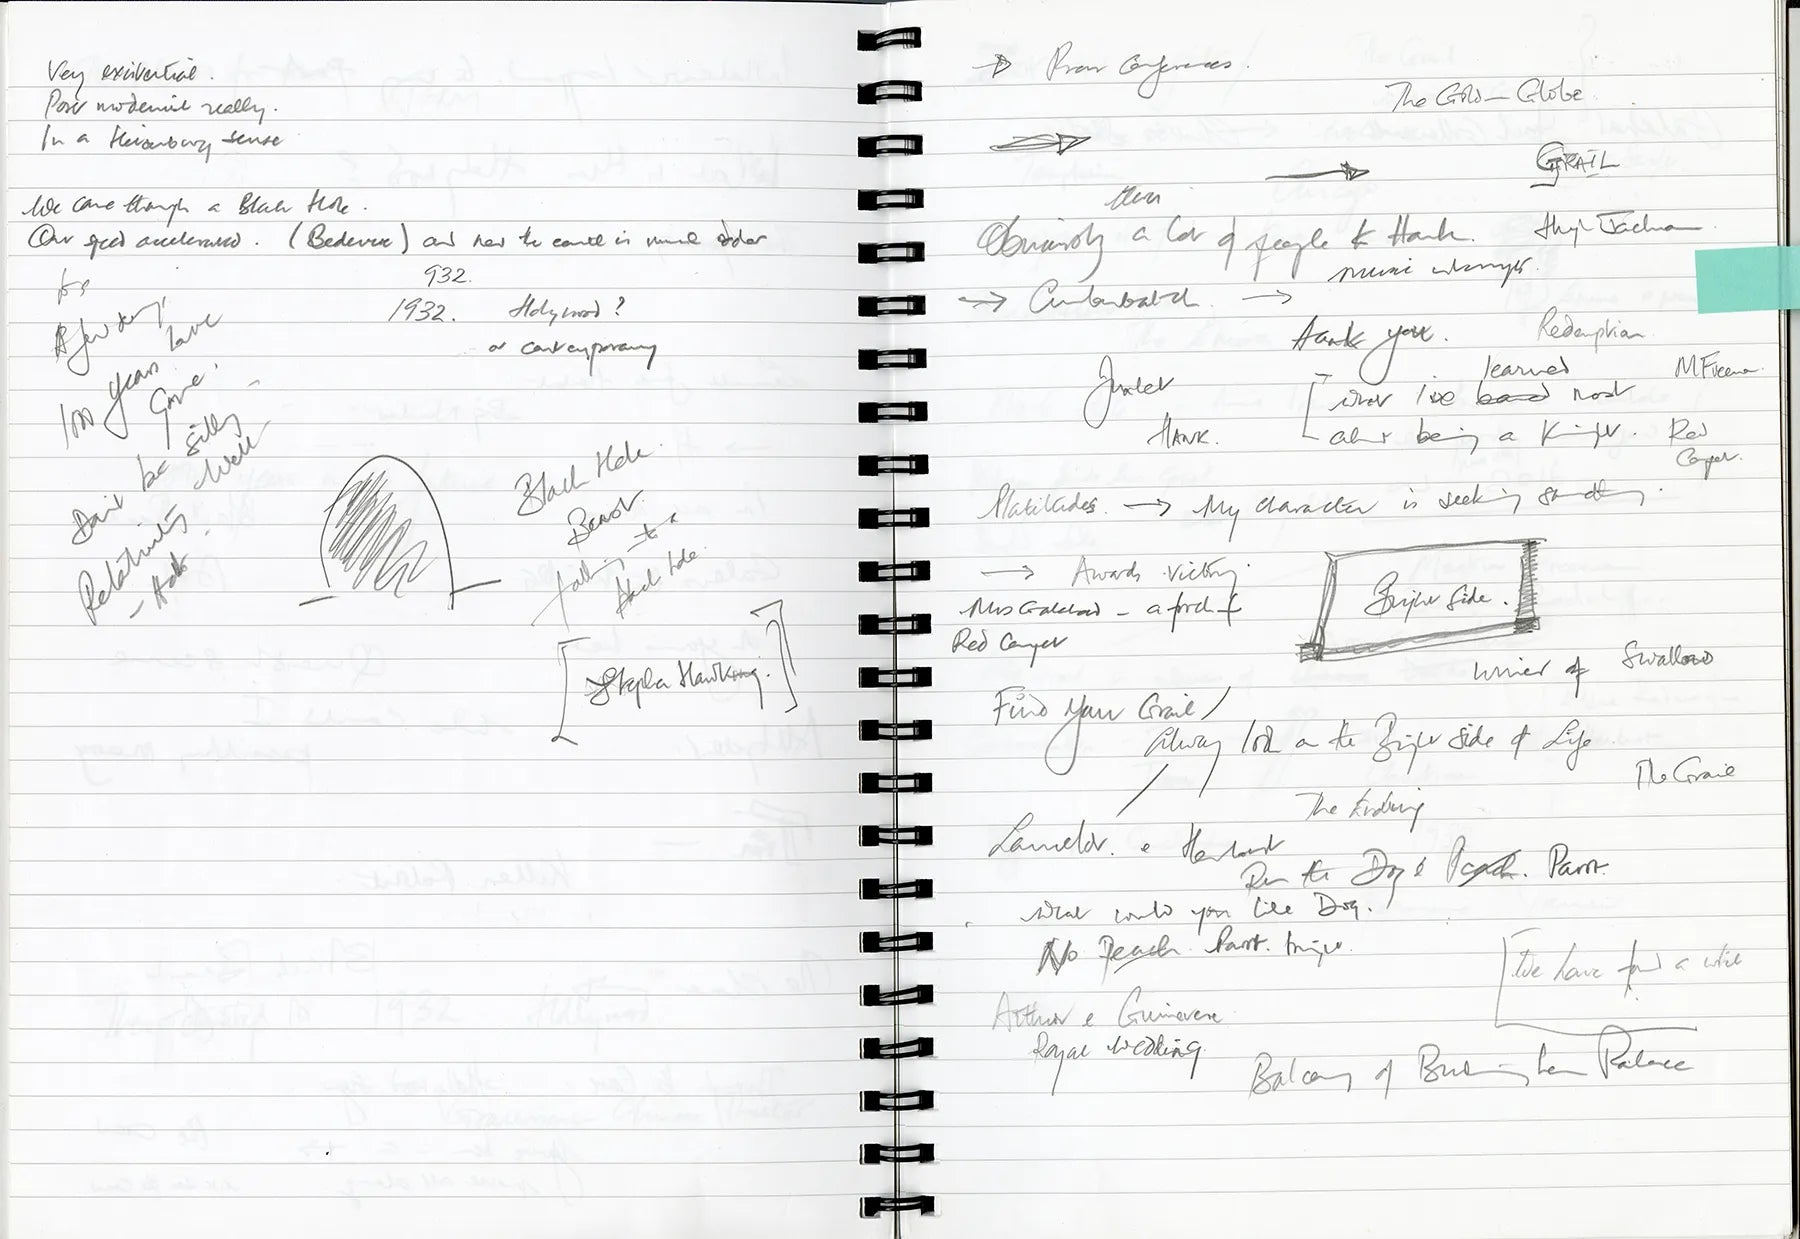 Very existential.
Post modernist really.
In a Heisenburg sense
We came through a Black Hole.
Our speed accelerated. (Bedevere) and now the earth is much older
932.
1932. Hollywood?
or contemporary
A few days
100 years have
gone.
Don't be silly
Relativity
Black Hole
Beast.
falling into a
black hole.
Stephen Hawking.
→ Press Conferences.
The Gold Globe
GRAIL
Obviously a lot of people to thank.
Hugh Jackman
→ Cumberbatch →
Thank you.
Redemption
learned
M Freeman
what I've based most
HANK.
about being a Knight.
Red
Carpet.
Platitudes. → My character is seeking something.
→ Awards victory.
Bright Side.
Red Carpet
winner of Swallows
Find Your Grail /
Always look on the Bright Side of Life
The Grail
The Ending
Lancelot. e Herbert
Run the Dog & Peach. Parrot.
what would you like Dog.
No Peach. Parrot.
I've have found a while
Arthur e Guinevere
Royal Wedding.
Balcony of Buckingham Palace